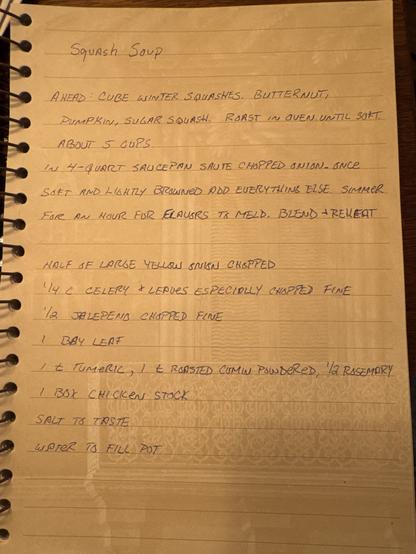 Squash Soup
AHEAD: CUBE WINTER SQUASHES. BUTTERNUT,
PUMPKIN, SUGAR SQUASH. ROAST IN OVEN UNTIL SOFT.
ABOUT 5 CUPS
IN 4-QUART SAUCEPAN SAUTE CHOPPED ONION. ONCE
SOFT AND LIGHTLY BROWNED ADD EVERYTHING ELSE SIMMER
FOR AN HOUR FOR FLAVORS TO MELD. BLEND + REHEAT
HALF OF LARGE YELLOW ONION CHOPPED
1/4 C CELERY + LEAVES ESPECIALLY CHOPPED FINE
1/2 JALEPENO CHOPPED FINE
1 BAY LEAF
1 t TUMERIC, 1 t ROASTED CUMIN POWDERED, 1/2 ROSEMARY
1 BOX CHICKEN STOCK
SALT TO TASTE
WATER TO FILL POT